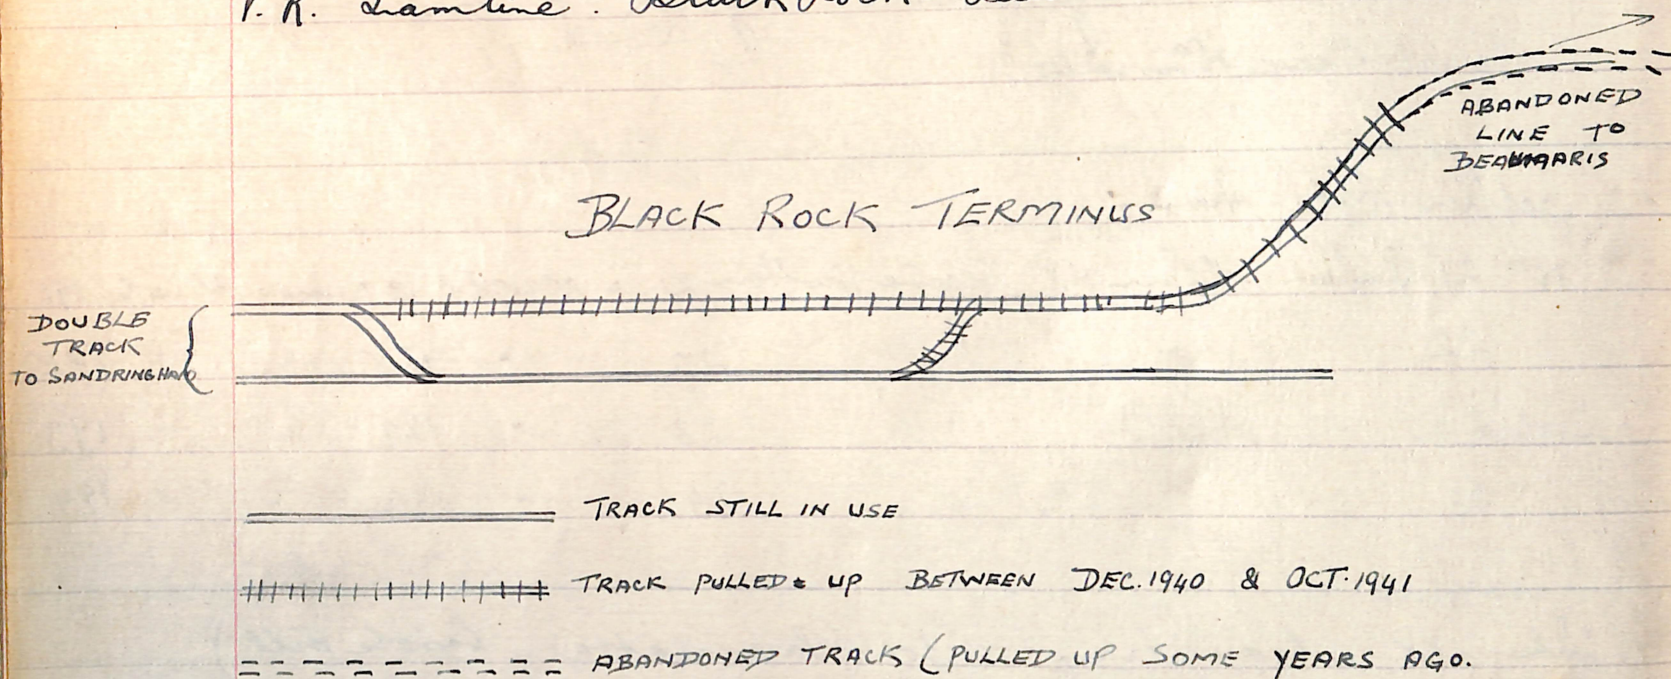 V. R. Tramline. Black Rock
ABANDONED
LINE TO
BEAUMARIS
BLACK ROCK TERMINUS
DOUBLE
TRACK
TO SANDRINGHAM
TRACK STILL IN USE
TRACK PULLED UP BETWEEN DEC. 1940 & OCT. 1941
ABANDONED TRACK (PULLED UP SOME YEARS AGO.